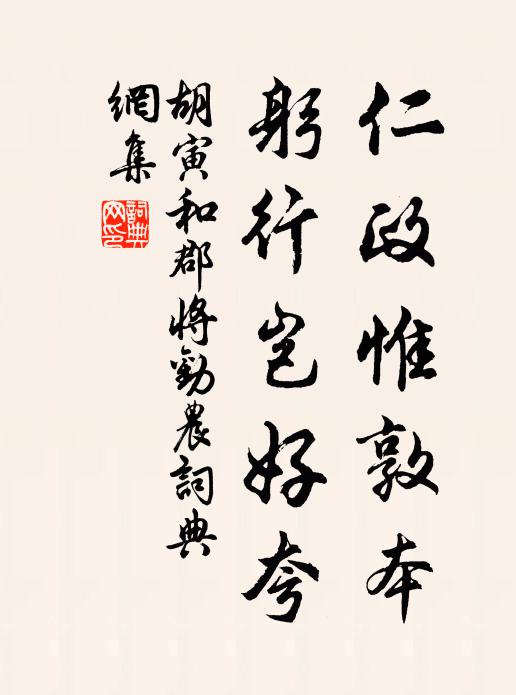 仁政惟敦本
躬行岂好夸
胡寅和郡将劝農詞典
網集
詞典
网印